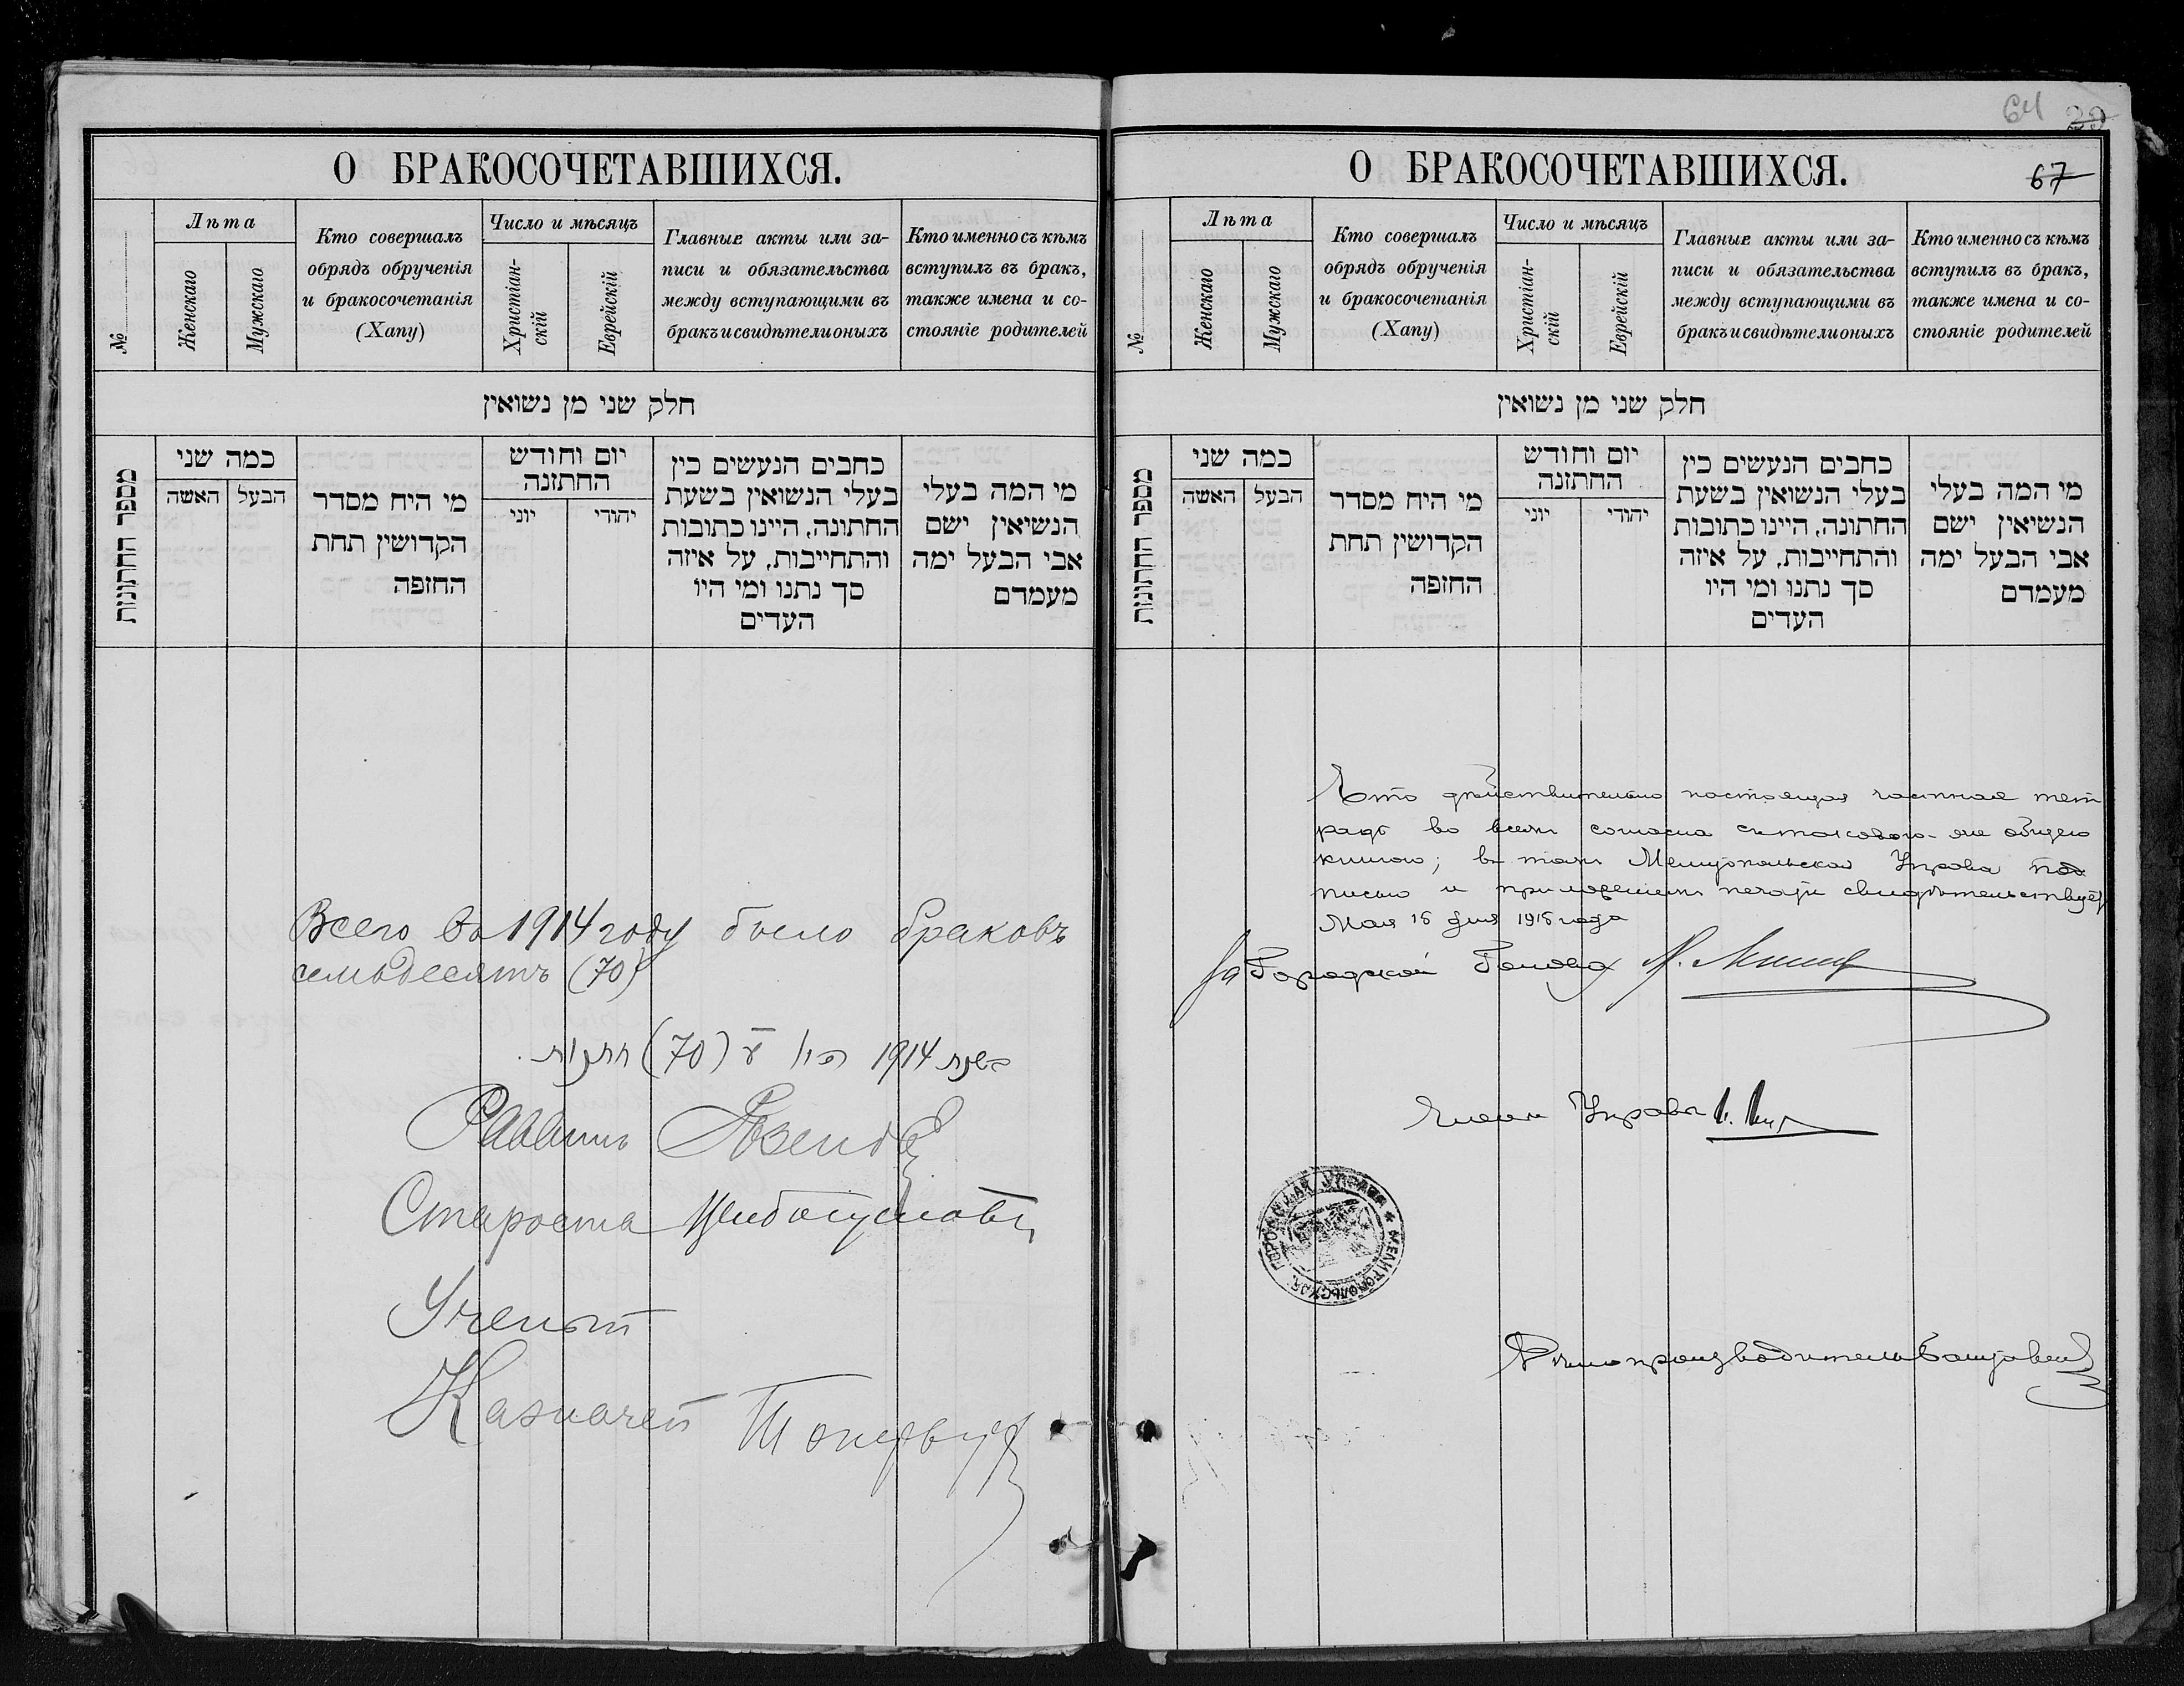 О БРАКОСОЧЕТАВШИХСЯ.
№
Лѣта
Женскаго
Мужскаго
Кто совершалъ
обрядъ обрученія
и бракосочетанія
(Хапу)
Число и мѣсяцъ
Христіан-
скій
Еврейскій
Главные акты или за-
писи и обязательства
между вступающими въ
бракъ и свидѣтели оныхъ
Кто именно съ кѣмъ
вступилъ въ бракъ,
также имена и со-
стояніе родителей
חלק שני מן נשואין
מספר החתונות
כמה שני
האשה
הבעל
מי היח מסדר
הקדושין תחת
החופה
יום וחודש
החתונה
יוני
יהודי
כחבים הנעשים כין
בעלי הנשואין בשעת
החתונה, היינו כתובות
והתחייבות, על איזה
סך נתנו ומי היו
העדים
מי המה בעלי
הנשיאין ישם
אבי הבעל ימה
מעמדם
Всего въ 1914 году было браковъ
семьдесятъ (70)
1914 (70)
Раввинъ
Староста
Ученый
Казначей
64
29
67
О БРАКОСОЧЕТАВШИХСЯ.
№
Лѣта
Женскаго
Мужскаго
Кто совершалъ
обрядъ обрученія
и бракосочетанія
(Хапу)
Число и мѣсяцъ
Христіан-
скій
Еврейскій
Главные акты или за-
писи и обязательства
между вступающими въ
бракъ и свидѣтели оныхъ
Кто именно съ кѣмъ
вступилъ въ бракъ,
также имена и со-
стояніе родителей
חלק שני מן נשואין
מספר החתונות
כמה שני
האשה
הבעל
מי היח מסדר
הקדושין תחת
החופה
יום וחודש
החתונה
יוני
יהודי
כחבים הנעשים כין
בעלי הנשואין בשעת
החתונה, היינו כתובות
והתחייבות, על איזה
סך נתנו ומי היו
העדים
מי המה בעלי
הנשיאין ישם
אבי הבעל ימה
מעמדם
Что дѣйствительно настоящая частная тет
радь во всемъ согласна съ таковою-же общею
книгою; въ томъ Мелитопольская Управа под
писью и приложеніемъ печати свидѣтельствуетъ
Мая 15 дня 1915 года
За Городской Голова
Членъ Управы
МЕЛИТОПОЛЬСКАЯ ГОРОДСКАЯ УПРАВА
Дѣлопроизводитель